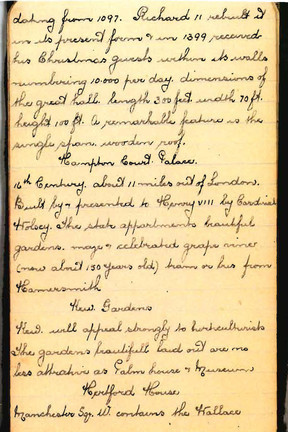 dating from 1097. Richard 11 rebuilt it
in its present form & in 1399 received
his Christmas guests within its walls
numbering 10.000 per day. dimensions of
the great hall. length 300 feet. width 70 ft.
height 100 ft. a remarkable feature is the
single span. wooden roof.
Hampton Court Palace.
16th Century. about 11 miles out of London.
Built by & presented to Henry VIII by Cardinal
Wolsey. The state appartments beautiful
gardens. maze & celebrated grape vine
(now about 150 years old) tram or bus from
Hamersmith
Kew Gardens
Kew. will appeal strongly to horticulturists
The gardens beautifull laid out are no
less attrative as Palm house & Museum
Hertford House
Manchester Sqr. W. contains the Wallace